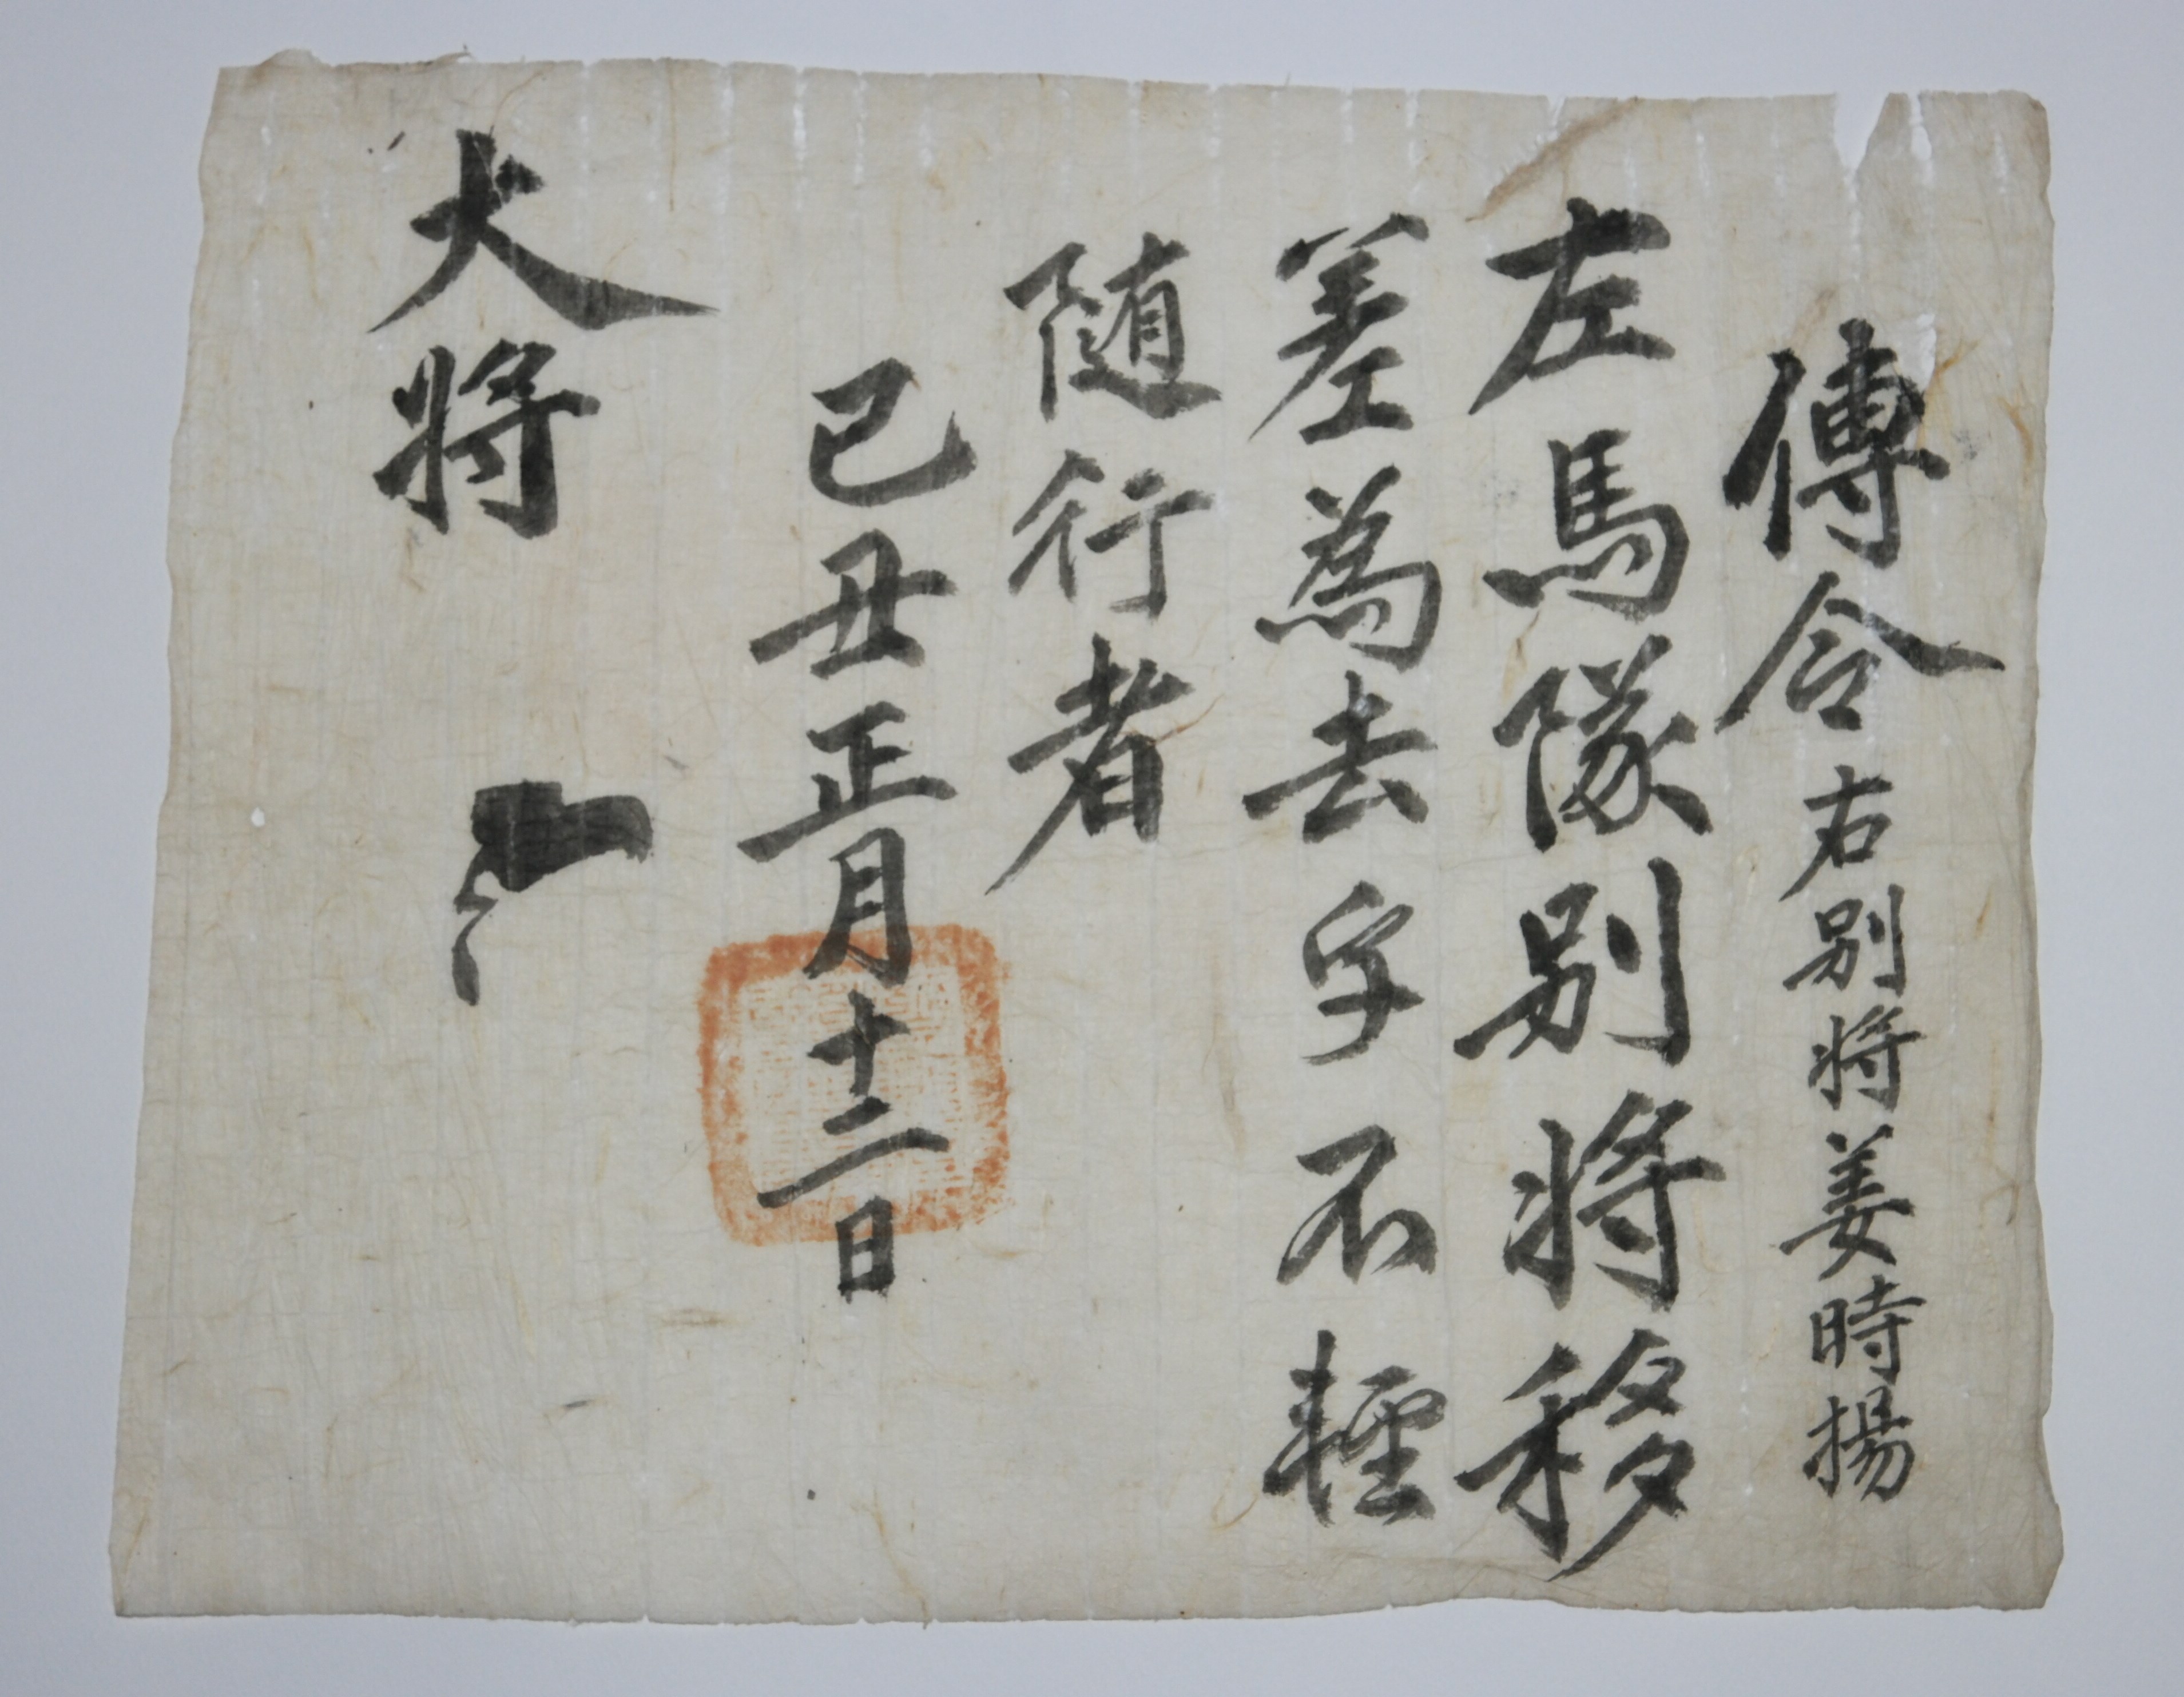 傳令右別將姜時揚
左馬隊別將移
差爲去乎不輕
随行者
己丑正月十二日
大將